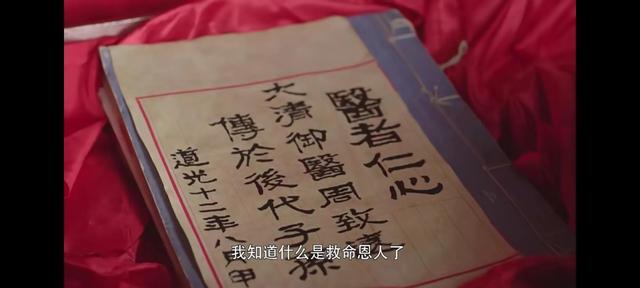 醫者仁心
大清御醫周致
傳於後代子孫
道光十二年八月甲
我知道什么是救命恩人了